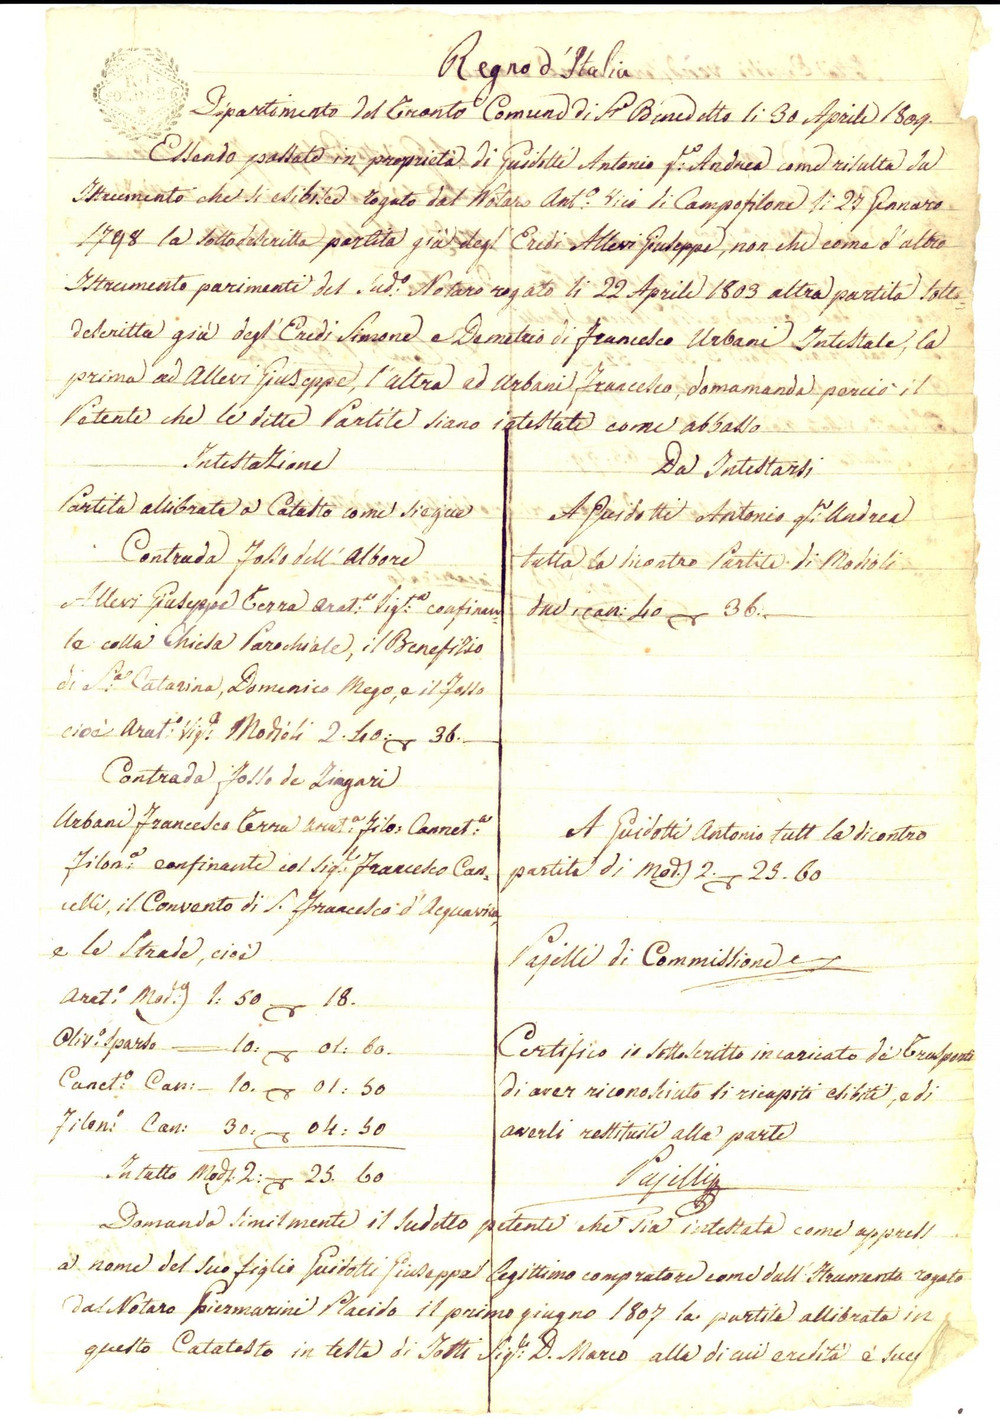 Regno d'Italia
Dipartimento del Tronto Comune di Sn Benedetto li 30 Aprile 1809.
Essendo passate in proprietà di Guidotti Antonio qm Andrea come risulta da
Istrumento che si esibisce rogato dal Notaro Anto Vici di Campofilone li 27 Gennaro
1798 la sottodescritta partita già degl' Eredi Allevi Giuseppe, non che come d'altro
Istrumento parimenti del Sudo Notaro rogato li 22 Aprile 1803 altra partita sotto-
descritta già degl' Eredi Simone e Demetrio di Francesco Urbani Intestate, la
prima ad Allevi Giuseppe, l'altra ad Urbani Francesco, domamanda perciò il
Petente che le ditte Partite siano intestate come abbasso
Intestazione
Partita allibrata a Catasto come siegue
Contrada Fosso dell' Albore
Allevi Giuseppe Terra Arata Vigta confinan-
te colla Chiesa Parochiale, il Benefizio
di Sa Catarina, Domenico Mego, e il Fosso
cioè Arata Viga Modioli 2. 40: 36.
Contrada Fosso de Zingari
Urbani Francesco Terra Arata Filo: Canneta
Filona confinante col Sigr Francesco Can-
celli, il Convento di S. Francesco d'Acquaviva,
e le Strade, cioè
Arata Mod: 1: 50 18.
Oliva sparso 10: 01: 60.
Caneta Can: 10. 01: 50
Filona Can: 30: 04: 50
In tutto Mod. 2: 25. 60
Da Intestarsi
A Guidotti Antonio qm Andrea
tutta la dicontro Partita di Modioli
due, can: 40 36.
A Guidotti Antonio tutt la dicontro
partita di Mod. 2. 25. 60
Pajelli di Commissione
Certifico io sottoscritto incaricato de Trasporti
di aver riconosciuto li ricapiti esibiti, e di
averli restituiti alla parte
Pajelli
Domanda similmente il sudetto petente che sia intestata come appress
a nome del suo figlio Guidotti Giuseppe legittimo compratore come dall' Istrumento rogato
dal Notaro Piermarini Placido il primo giugno 1807 la partita allibrata in
questo Catatasto in testa di Sigr D. Marco alla di cui eredità è suc